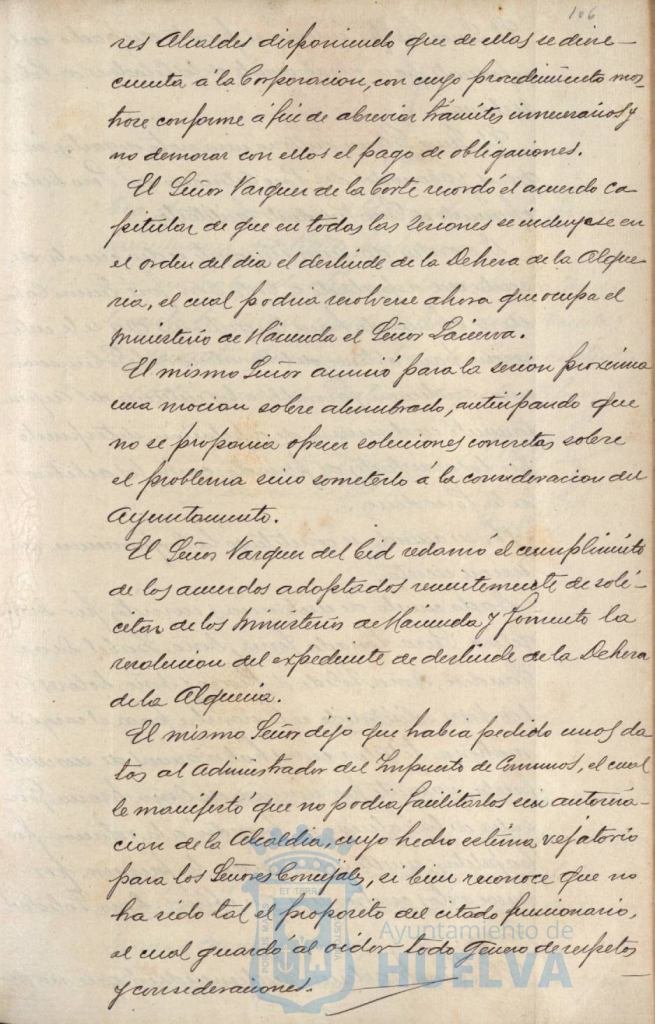 106
res Alcaldes disponiendo que de ellas se diese
cuenta á la Corporacion, con cuyo procedimiento mos-
trose conforme á fin de abreviar trámites innecesarios y
no demorar con ellos el pago de obligaciones.
El Señor Vazquez de la Corte recordó el acuerdo ca
pitular de que en todas las sesiones se incluyese en
el orden del dia el deslinde de la Dehesa de la Alque
ria, el cual podria resolverse ahora que ocupa el
Ministerio de Hacienda el Señor Lacierva.
El mismo Señor anunció para la sesion proxima
una mocion sobre alumbrado, anticipando que
no se proponia ofrecer soluciones concretas sobre
el problema sino someterlo á la consideracion del
Ayuntamiento.
El Señor Vazquez del Cid reclamó el cumplimiento
de los acuerdos adoptados recientemente de soli-
citar de los Ministerios de Hacienda y Fomento la
resolucion del expediente de deslinde de la Dehesa
de la Alqueria.
El mismo Señor dijo que habia pedido unos da
tos al Administrador del Impuesto de Consumos, el cual
le manifestó que no podia facilitarlos sin autoriza-
cion de la Alcaldia, cuyo hecho estima vejatorio
para los Señores Concejales, si bien reconoce que no
ha sido tal el proposito del citado funcionario,
el cual guardó al oidor todo genero de respetos
y consideraciones.
Ayuntamiento de
HUELVA